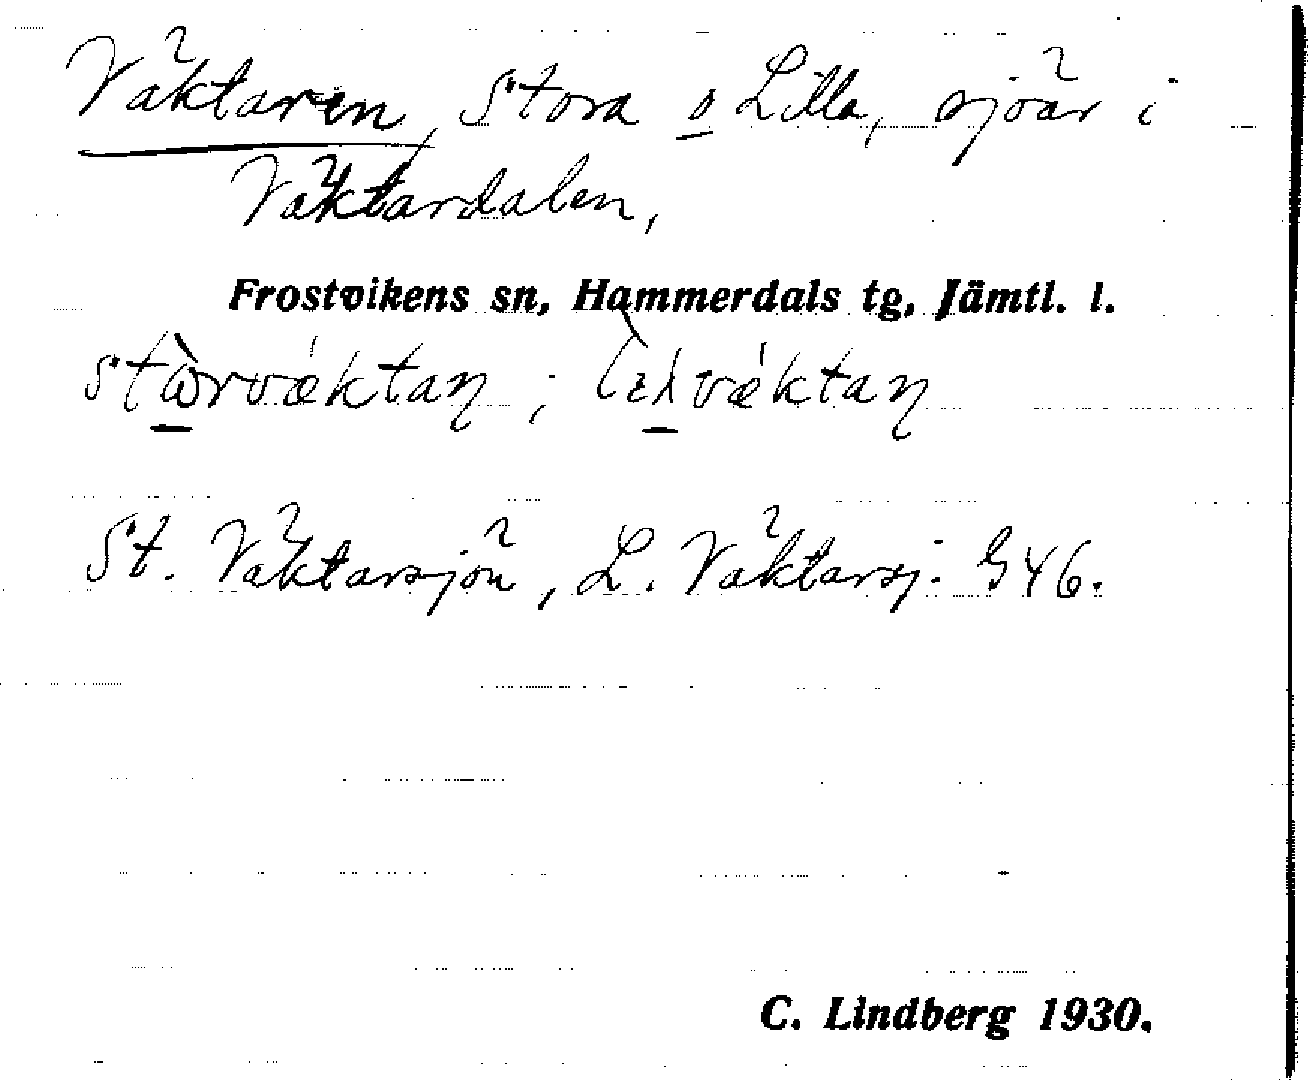 Väktaren, Stora o Lilla, sjöar i
Väktardalen,
Frostvikens sn, Hammerdals tg, Jämtl. l.
St. Väktarsjön, L. Väktarsj. G46.
C. Lindberg 1930.